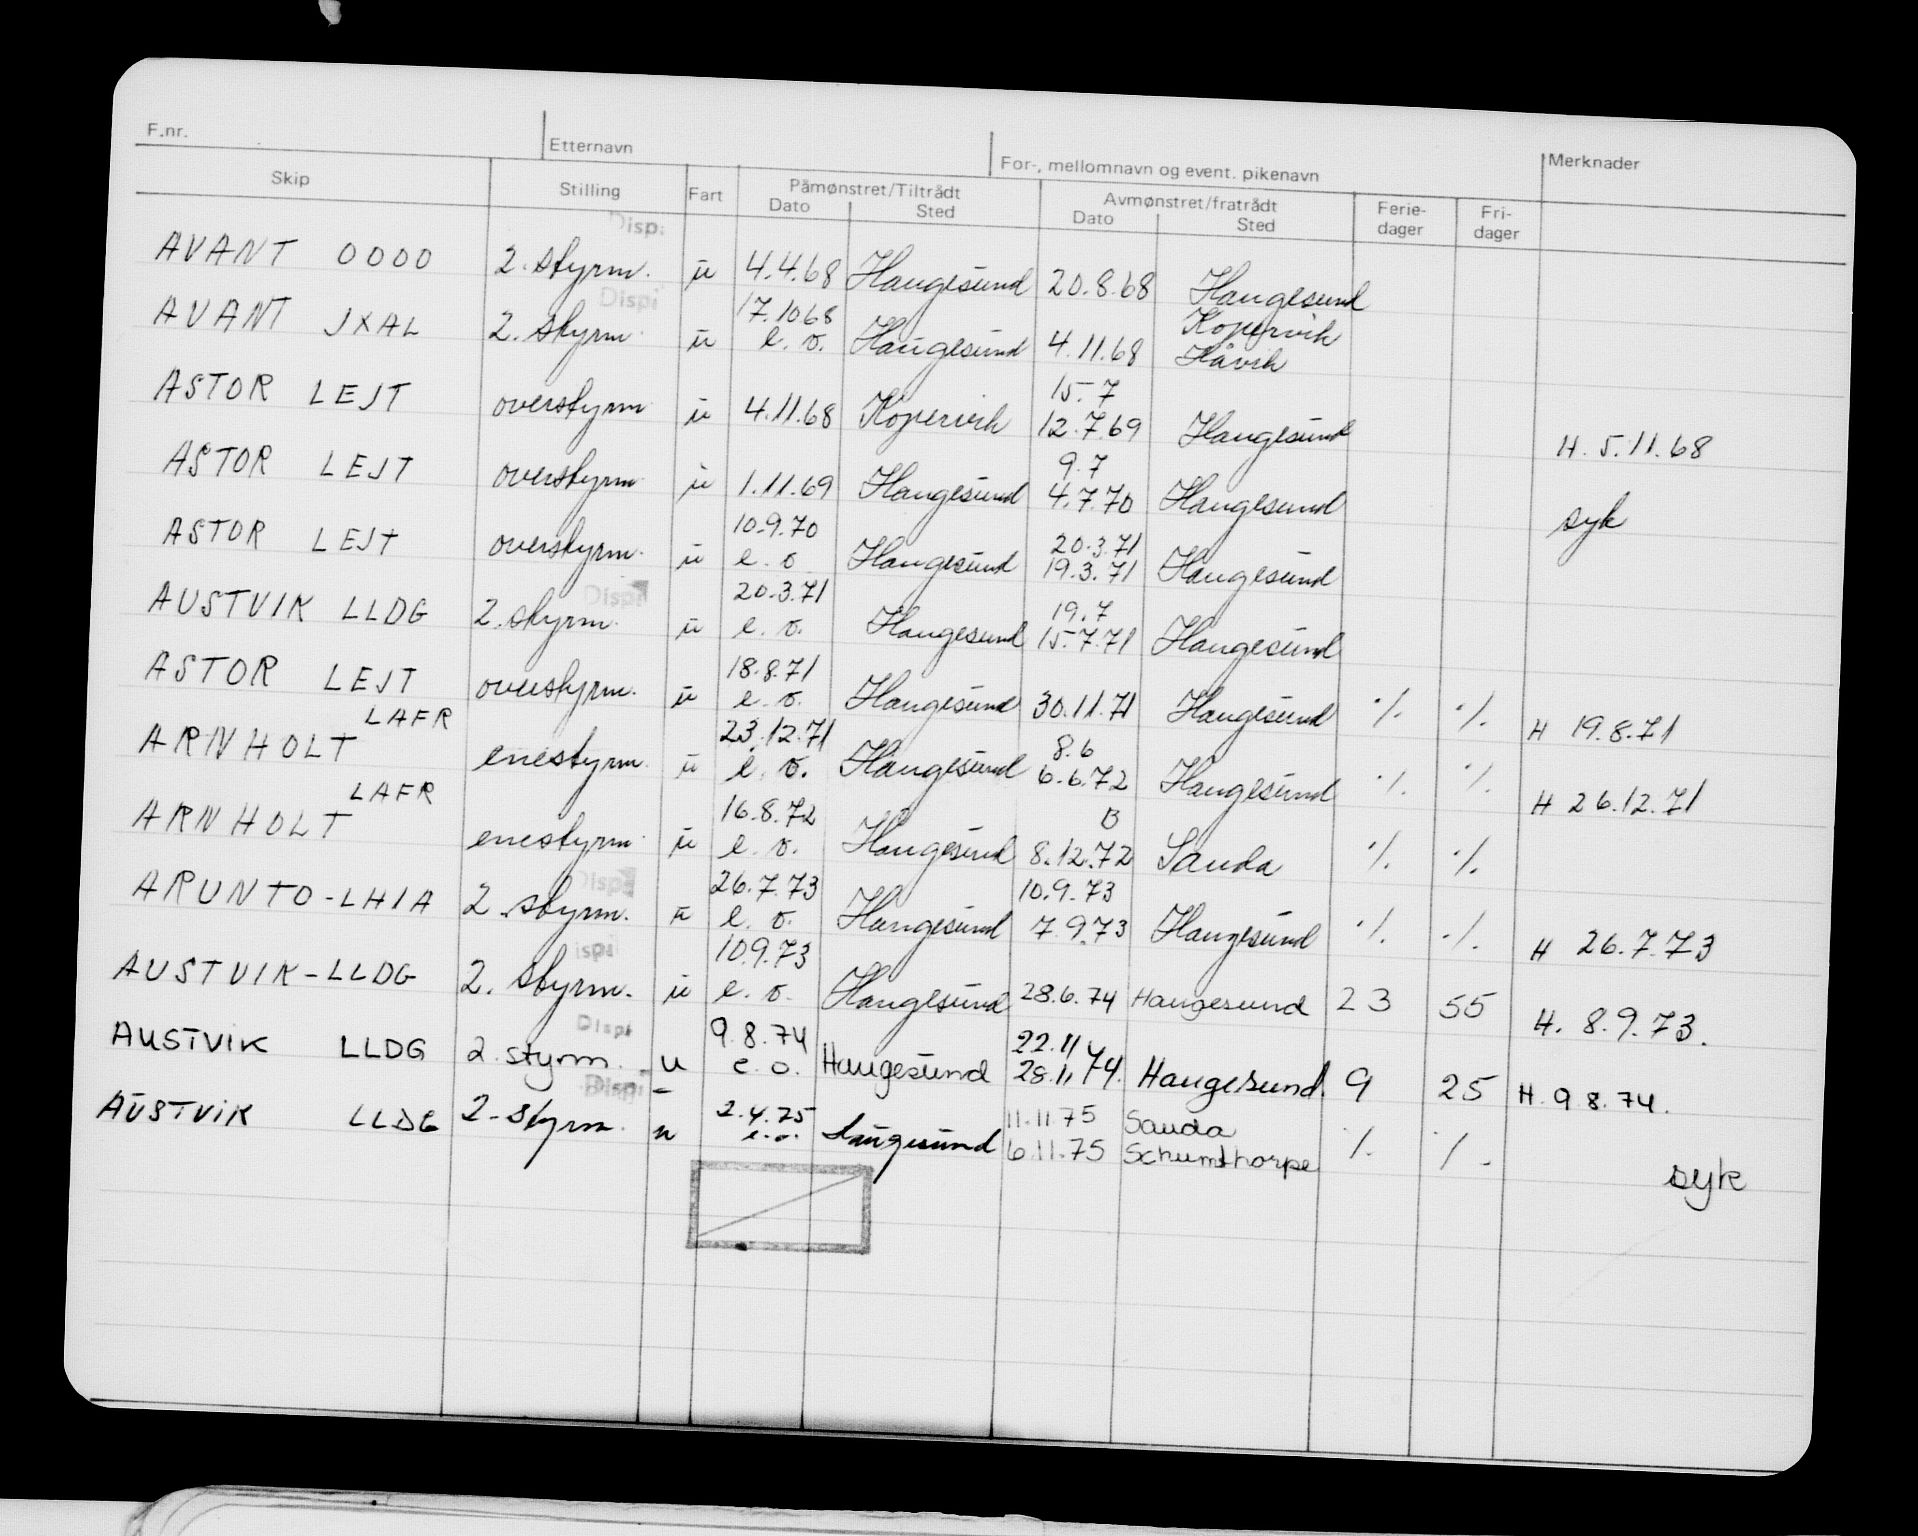 F.nr. Etternavn For-, mellomnavn og event. pikenavn Merknader
Skip Stilling Fart Påmønstret/Tiltrådt Avmønstret/fratrådt Ferie- Fri-
Dato Sted Dato Sted dager dager
Disp.
AVANT OOOO 2. styrm. u 4.4.68 Haugesund 20.8.68 Haugesund
Disp
17.1068 Kopervik
AVANT JXAL 2. styrm u e. o. Haugesund 4.11.68 Håvik
15.7
ASTOR LEJT overstyrm u 4.11.68 Kopervik 12.7.69 Haugesund H. 5.11.68
9.7
ASTOR LEJT overstyrm u 1.11.69 Haugesund 4.7.70 Haugesund syk
10.9.70 20.3.71
ASTOR LEJT overstyrm. u e. o Haugesund 19.3.71 Haugesund
Disp
20.3.71 19.7
AUSTVIK LLDG 2. styrm. u e. o. Haugesund 15.7.71 Haugesund
18.8.71
ASTOR LEJT overstyrm. u e. o. Haugesund 30.11.71 Haugesund ./. ./. H 19.8.71
LAFR 23.12.71 8.6
ARNHOLT enestyrm. u e. o. Haugesund 6.6.72 Haugesund ./. ./. H 26.12.71
LAFR 16.8.72 B
ARNHOLT enestyrm. u e. o. Haugesund 8.12.72 Sauda ./. ./.
Disp
26.7.73 10.9.73
ARUNTO-LHIA 2. styrm. u e. o. Haugesund 7.9.73 Haugesund ./. ./. H 26.7.73
ispi
10.9.73
AUSTVIK-LLDG 2. styrm. u e. o. Haugesund 28.6.74 Haugesund 23 55 H. 8.9.73.
Dispi
9.8.74 22.11
AUSTVIK LLDG 2. styrm. u e. o. Haugesund 28.11.74. Haugesund. 9 25 H. 9.8.74.
Disp
2.4.75 11.11.75 Sauda
AUSTVIK LLDG 2. styrm. u e.o. Haugesund 6.11.75 Schumthorpe ./. ./. syk